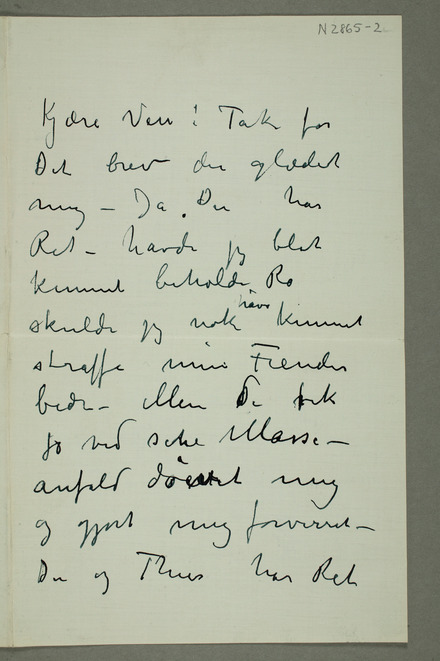 N 2865-2
Kjære Ven! Tak for
Det brev der glædet
mig – Ja. Du har
Ret – havde jeg blot
kunnet beholde Ro
skulde jeg nok have kunnet
straffe mine Fiender
bedre – Men De fik
jo ved sine Masse–
anfald døvet mig
og gjort mig forvirret –
Du og Thiis har Ret